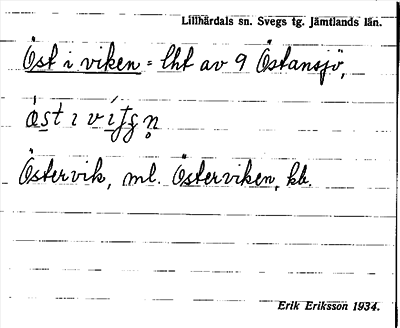 Lillhärdals sn. Svegs tg. Jämtlands län.
Öst i viken = lht av 9 Östansjö,
Östervik, ml. Österviken, kk.
Erik Eriksson 1934.